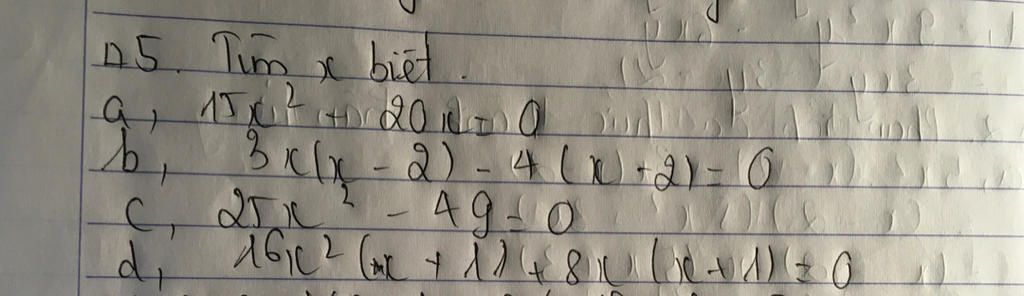 Δ5. Tìm x biết.
a, 15x² + 20x = 0
b, 3x(x - 2) - 4(x - 2) = 0
c, 25x² - 49 = 0
d, 16x² (x + 1) + 8x (x + 1) = 0